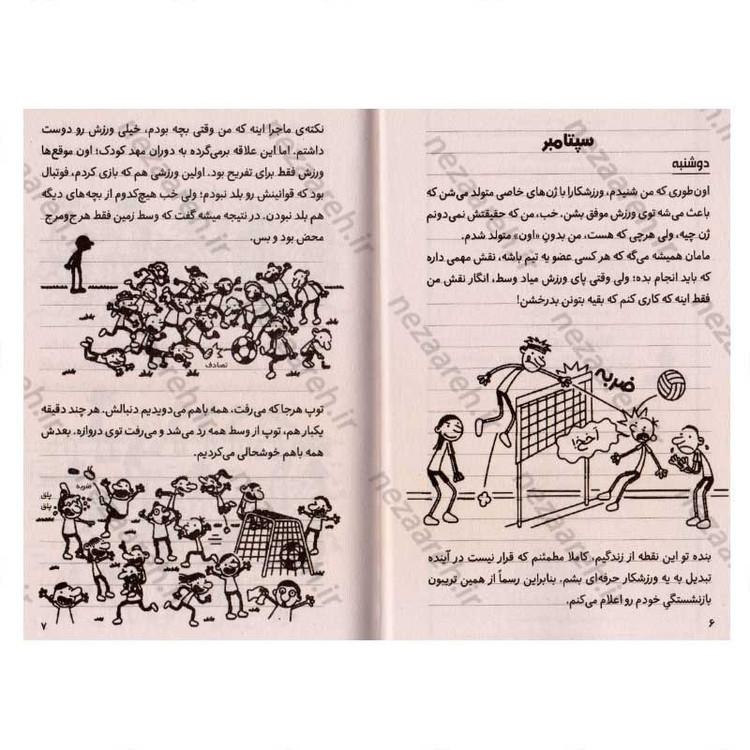 سپتامبر
دوشنبه
اون‌طوری که من شنیدم، ورزشکارا با ژن‌های خاصی متولد می‌شن که
باعث می‌شه توی ورزش موفق بشن. خب، من که حقیقتش نمی‌دونم
ژن چیه، ولی هرچی که هست، من بدونِ «اون» متولد شدم.
مامان همیشه می‌گه که هر کسی عضو یه تیم باشه، نقش مهمی داره
که باید انجام بده؛ ولی وقتی پای ورزش میاد وسط، انگار نقش من
فقط اینه که کاری کنم که بقیه بتونن بدرخشن!
ضربه
آخ!
بنده تو این نقطه از زندگیم، کاملا مطمئنم که قرار نیست در آینده
تبدیل به یه ورزشکار حرفه‌ای بشم. بنابراین رسماً از همین تریبون
بازنشستگیِ خودم رو اعلام می‌کنم.
۶
نکته‌ی ماجرا اینه که من وقتی بچه بودم، خیلی ورزش رو دوست
داشتم. اما این علاقه برمی‌گرده به دوران مهد کودک؛ اون موقع‌ها
ورزش فقط برای تفریح بود. اولین ورزشی هم که بازی کردم، فوتبال
بود که قوانینش رو بلد نبودم؛ ولی خب هیچ‌کدوم از بچه‌های دیگه
هم بلد نبودن. در نتیجه میشه گفت که وسط زمین فقط هرج‌ومرج
محض بود و بس.
تصادف
توپ هرجا که می‌رفت، همه باهم می‌دویدیم دنبالش. هر چند دقیقه
یکبار هم، توپ از وسط همه رد می‌شد و می‌رفت توی دروازه. بعدش
همه باهم خوشحالی می‌کردیم.
ضربه
پلق
پلق
۷
nezaareh.ir
nezaareh.ir
nezaareh.ir
nezaareh.ir
nezaareh.ir
nezaareh.ir